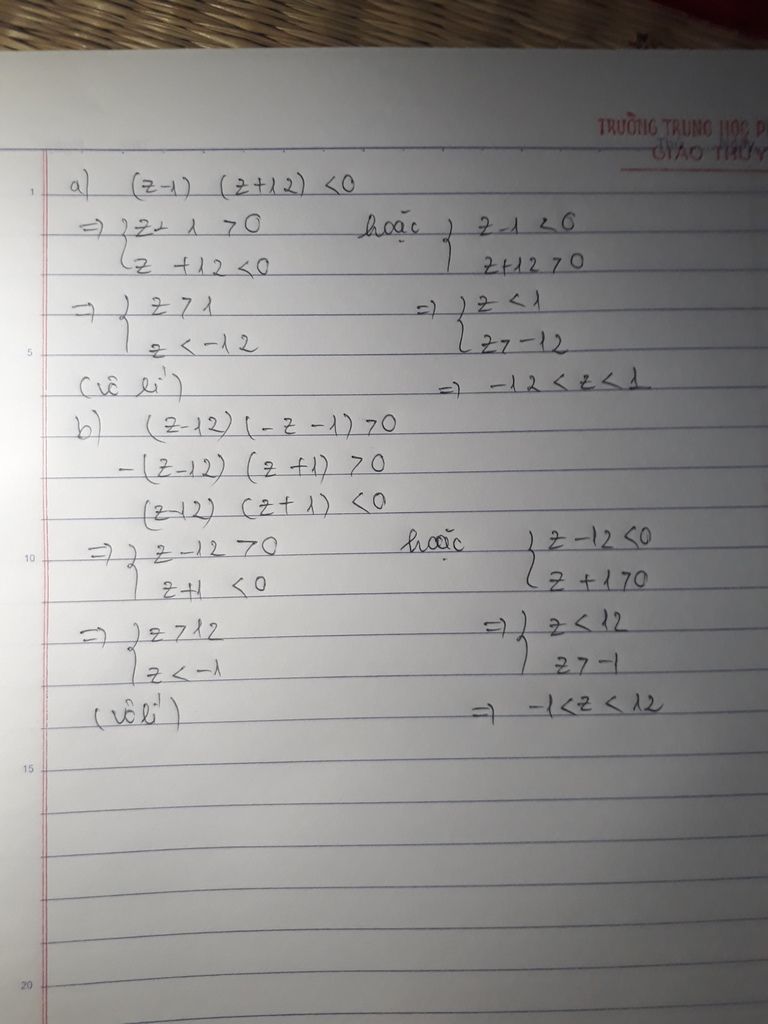 TRƯỜNG TRUNG HỌC P
GIAO THỦY
1
a) (z-1) (z+12) <0
=> { z- 1 >0 hoặc { z-1 <0
z +12 <0 z+12 >0
=> { z >1 => { z <1
5
z < -12 z > -12
(vô lí) => -12 < z < 1
b) (z-12) (-z -1) >0
-(z-12) (z +1) >0
(z-12) (z+1) <0
10
=> { z -12 >0 hoặc { z -12 <0
z+1 <0 z +1 >0
=> { z >12 => { z < 12
z < -1 z > -1
(vô lí) => -1 < z < 12
15
20